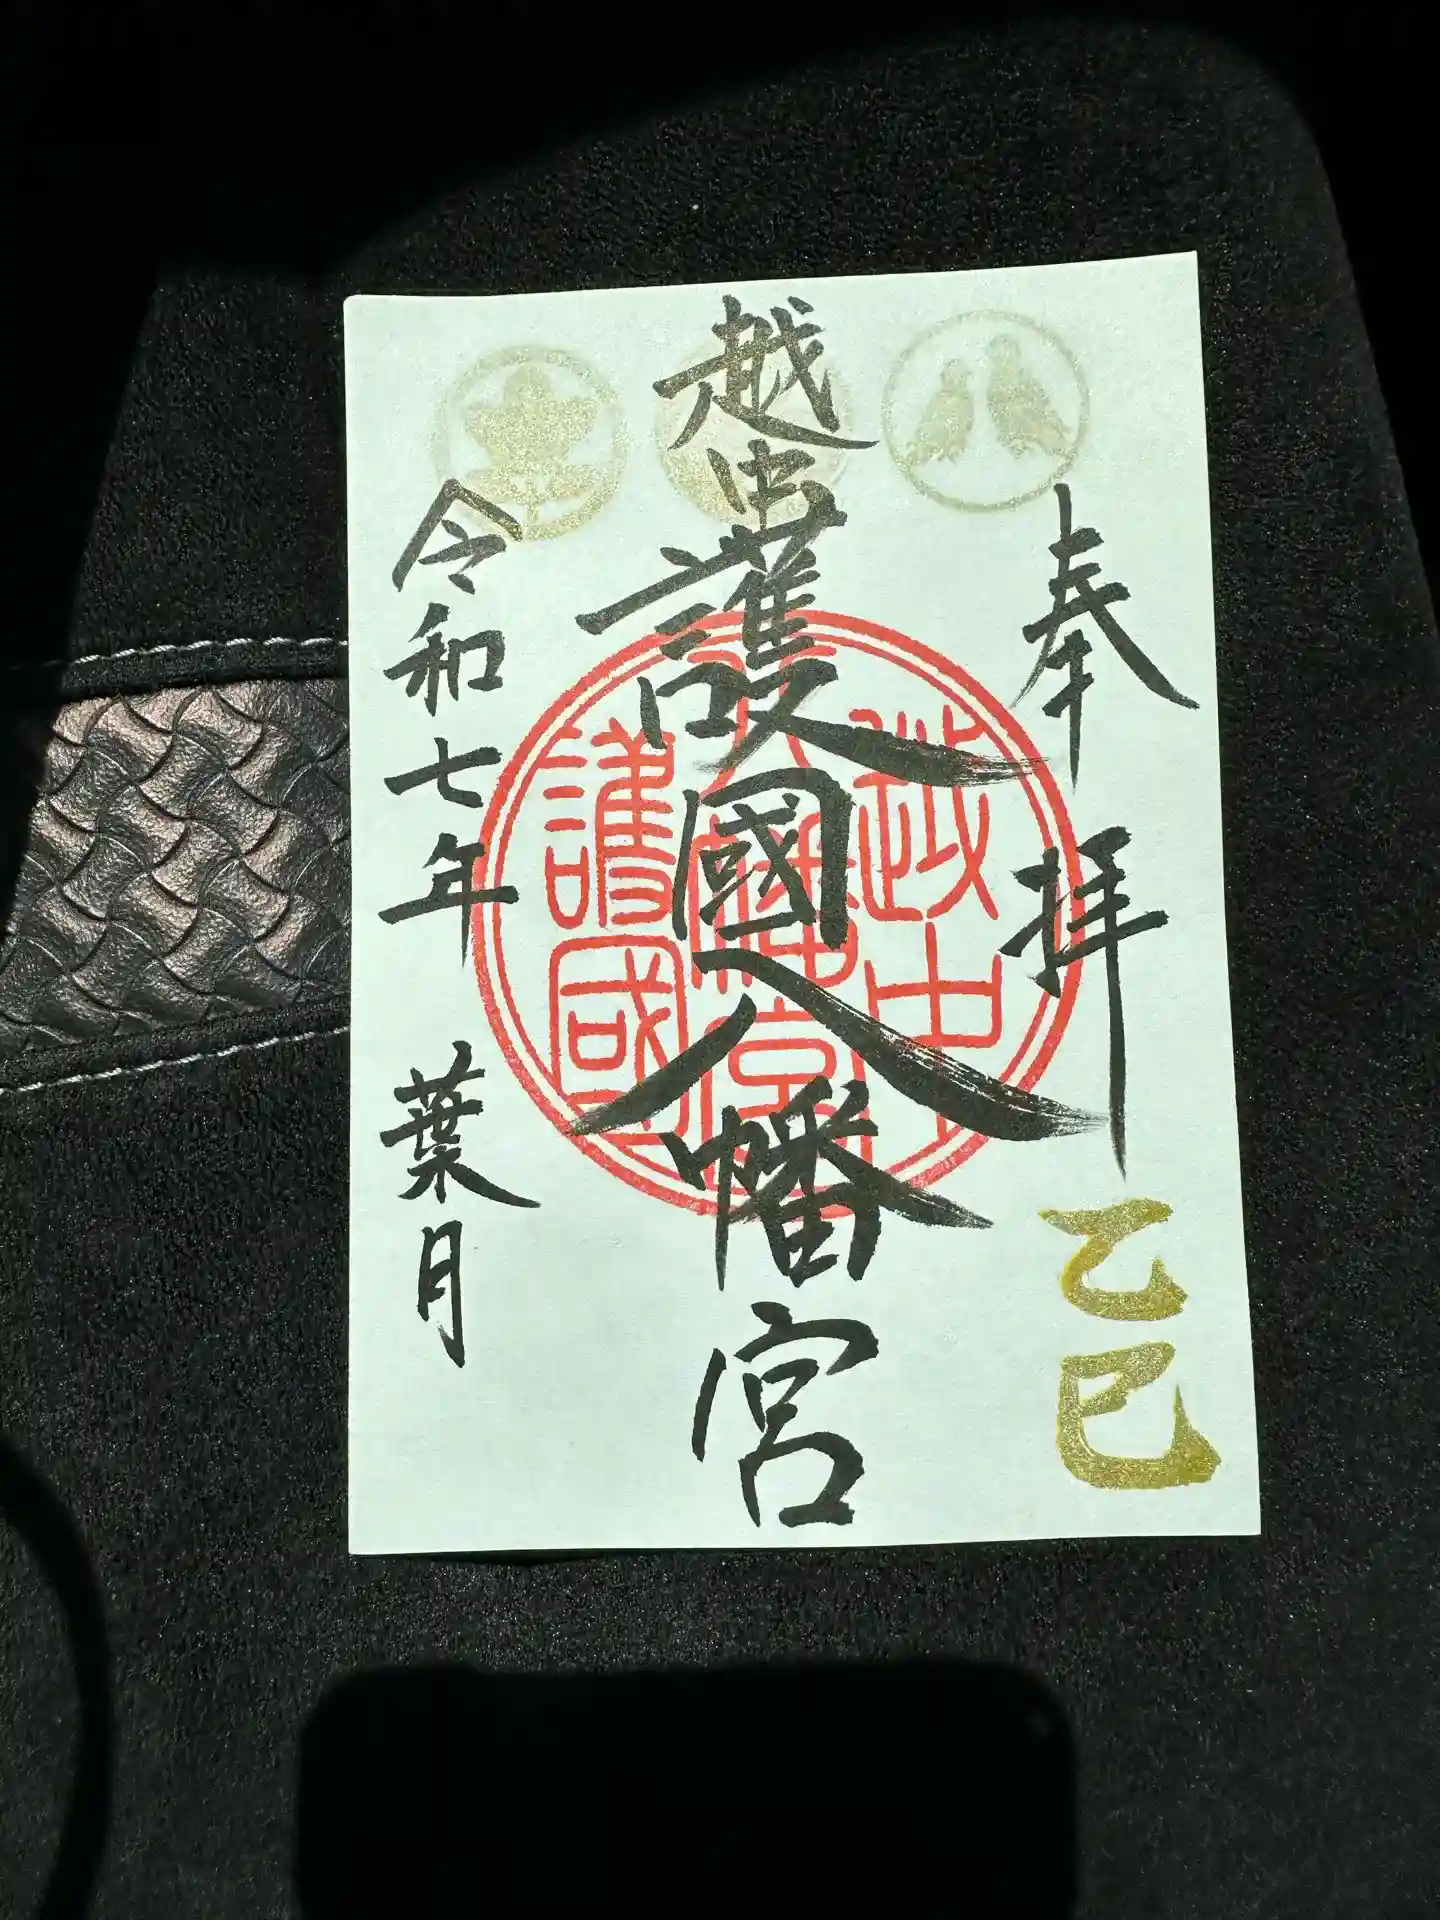 奉拝
乙巳
越中護國八幡宮
越中
八幡宮
護國
令和七年
葉月